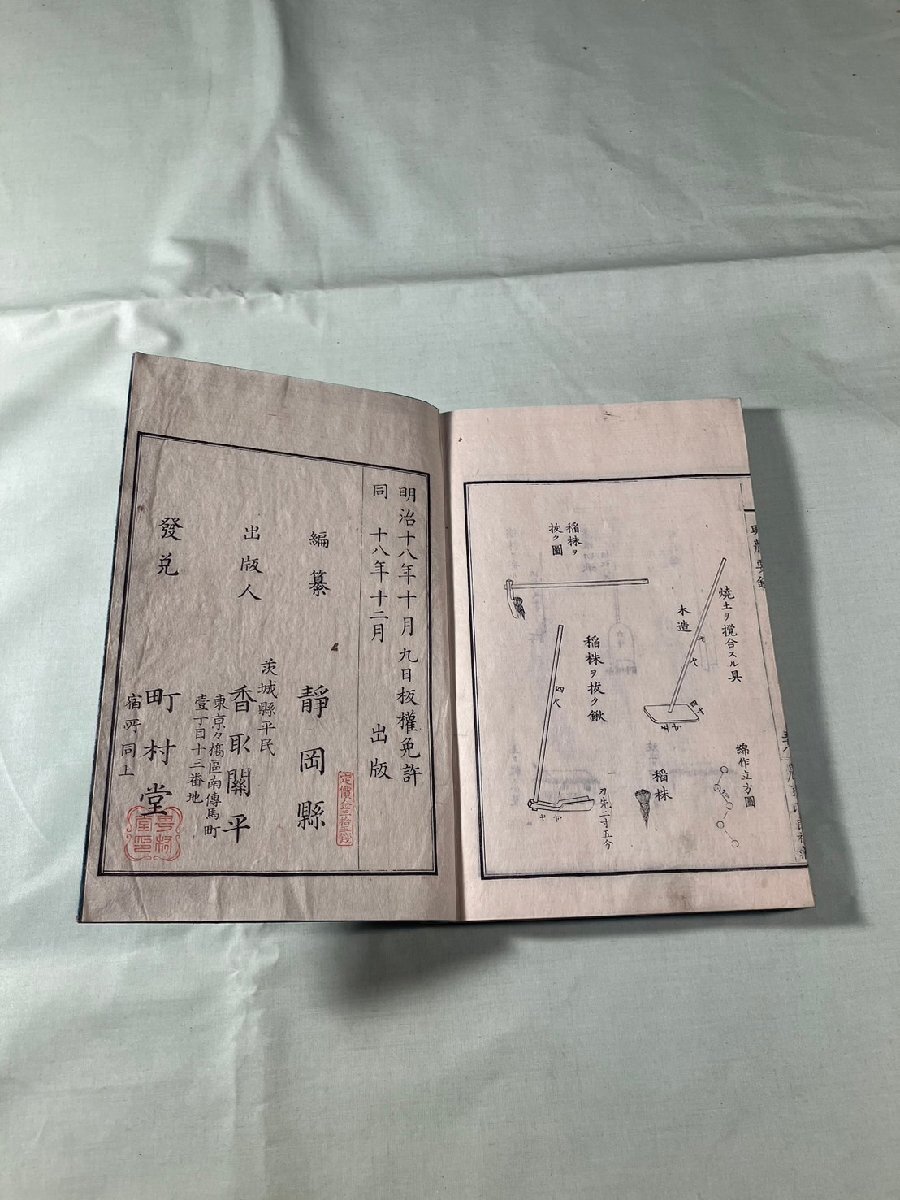 焼土ヲ攪合スル具
木造
稲株ヲ
拔ク圖
稲株ヲ拔ク鍬
四尺
刀巾二寸五分
稲株
綿作立方圖
明治十八年十月九日板權免許
同 十八年十二月 出版
編纂 靜岡縣
茨城縣平民
出版人 香取關平
東京々橋區南傳馬町
壹丁目十三番地
發兌 町村堂
宿所同上